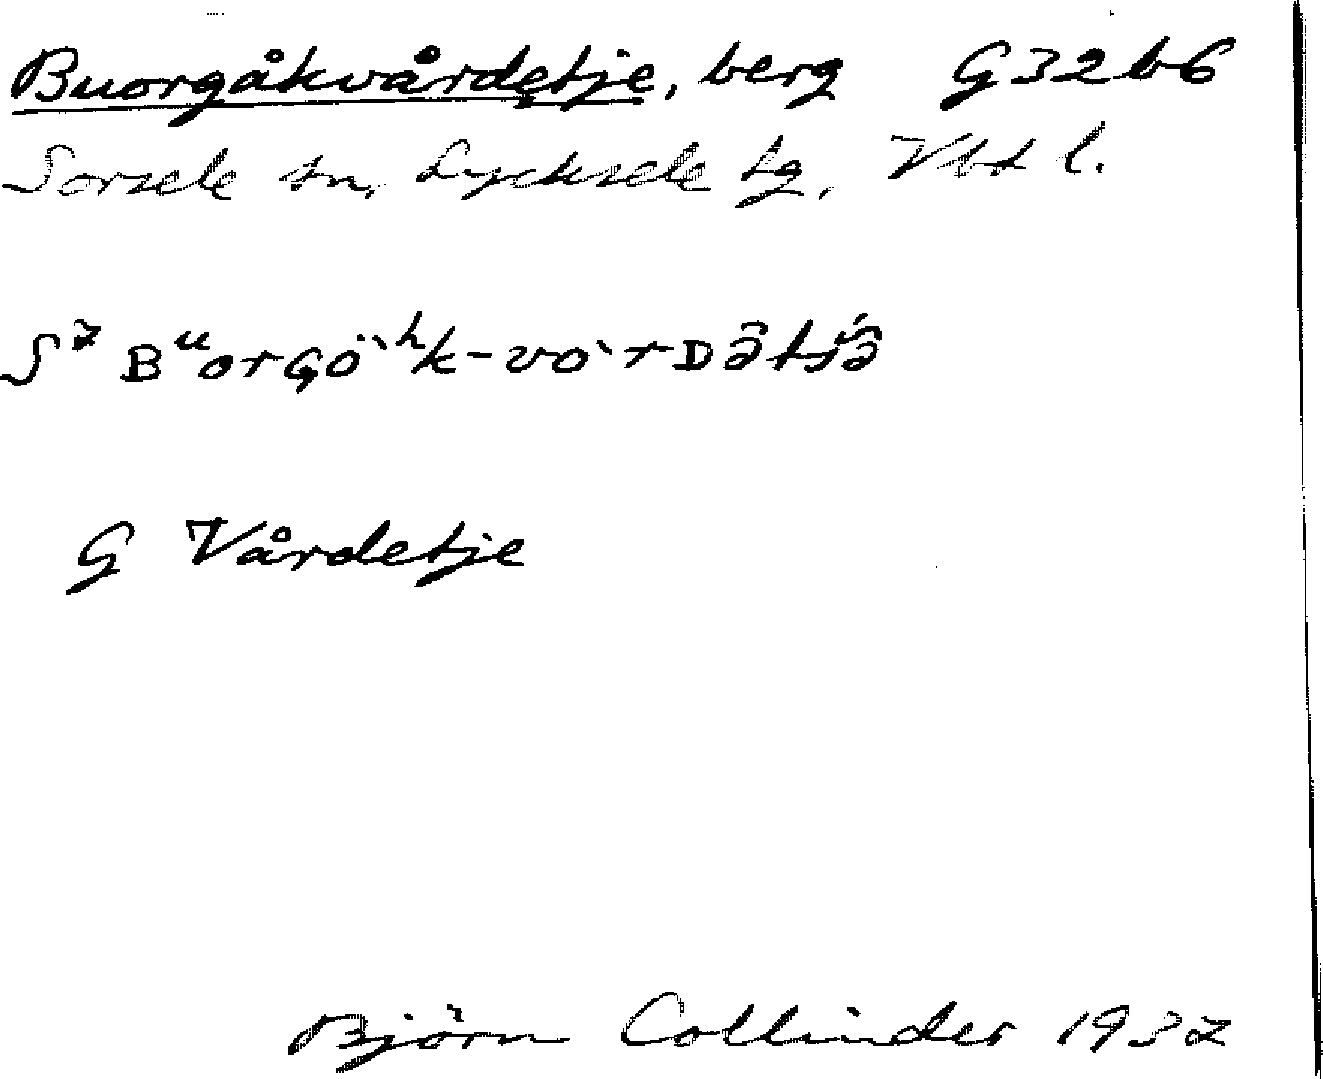 Buorgåkvårdetje, berg G32b6
Sorsele sn, Lycksele tg, Vbt l.
S⁷ BᵘorGö̀ʰk-vòrDə̂tsə̂
G Vårdetje
Björn Collinder 1937